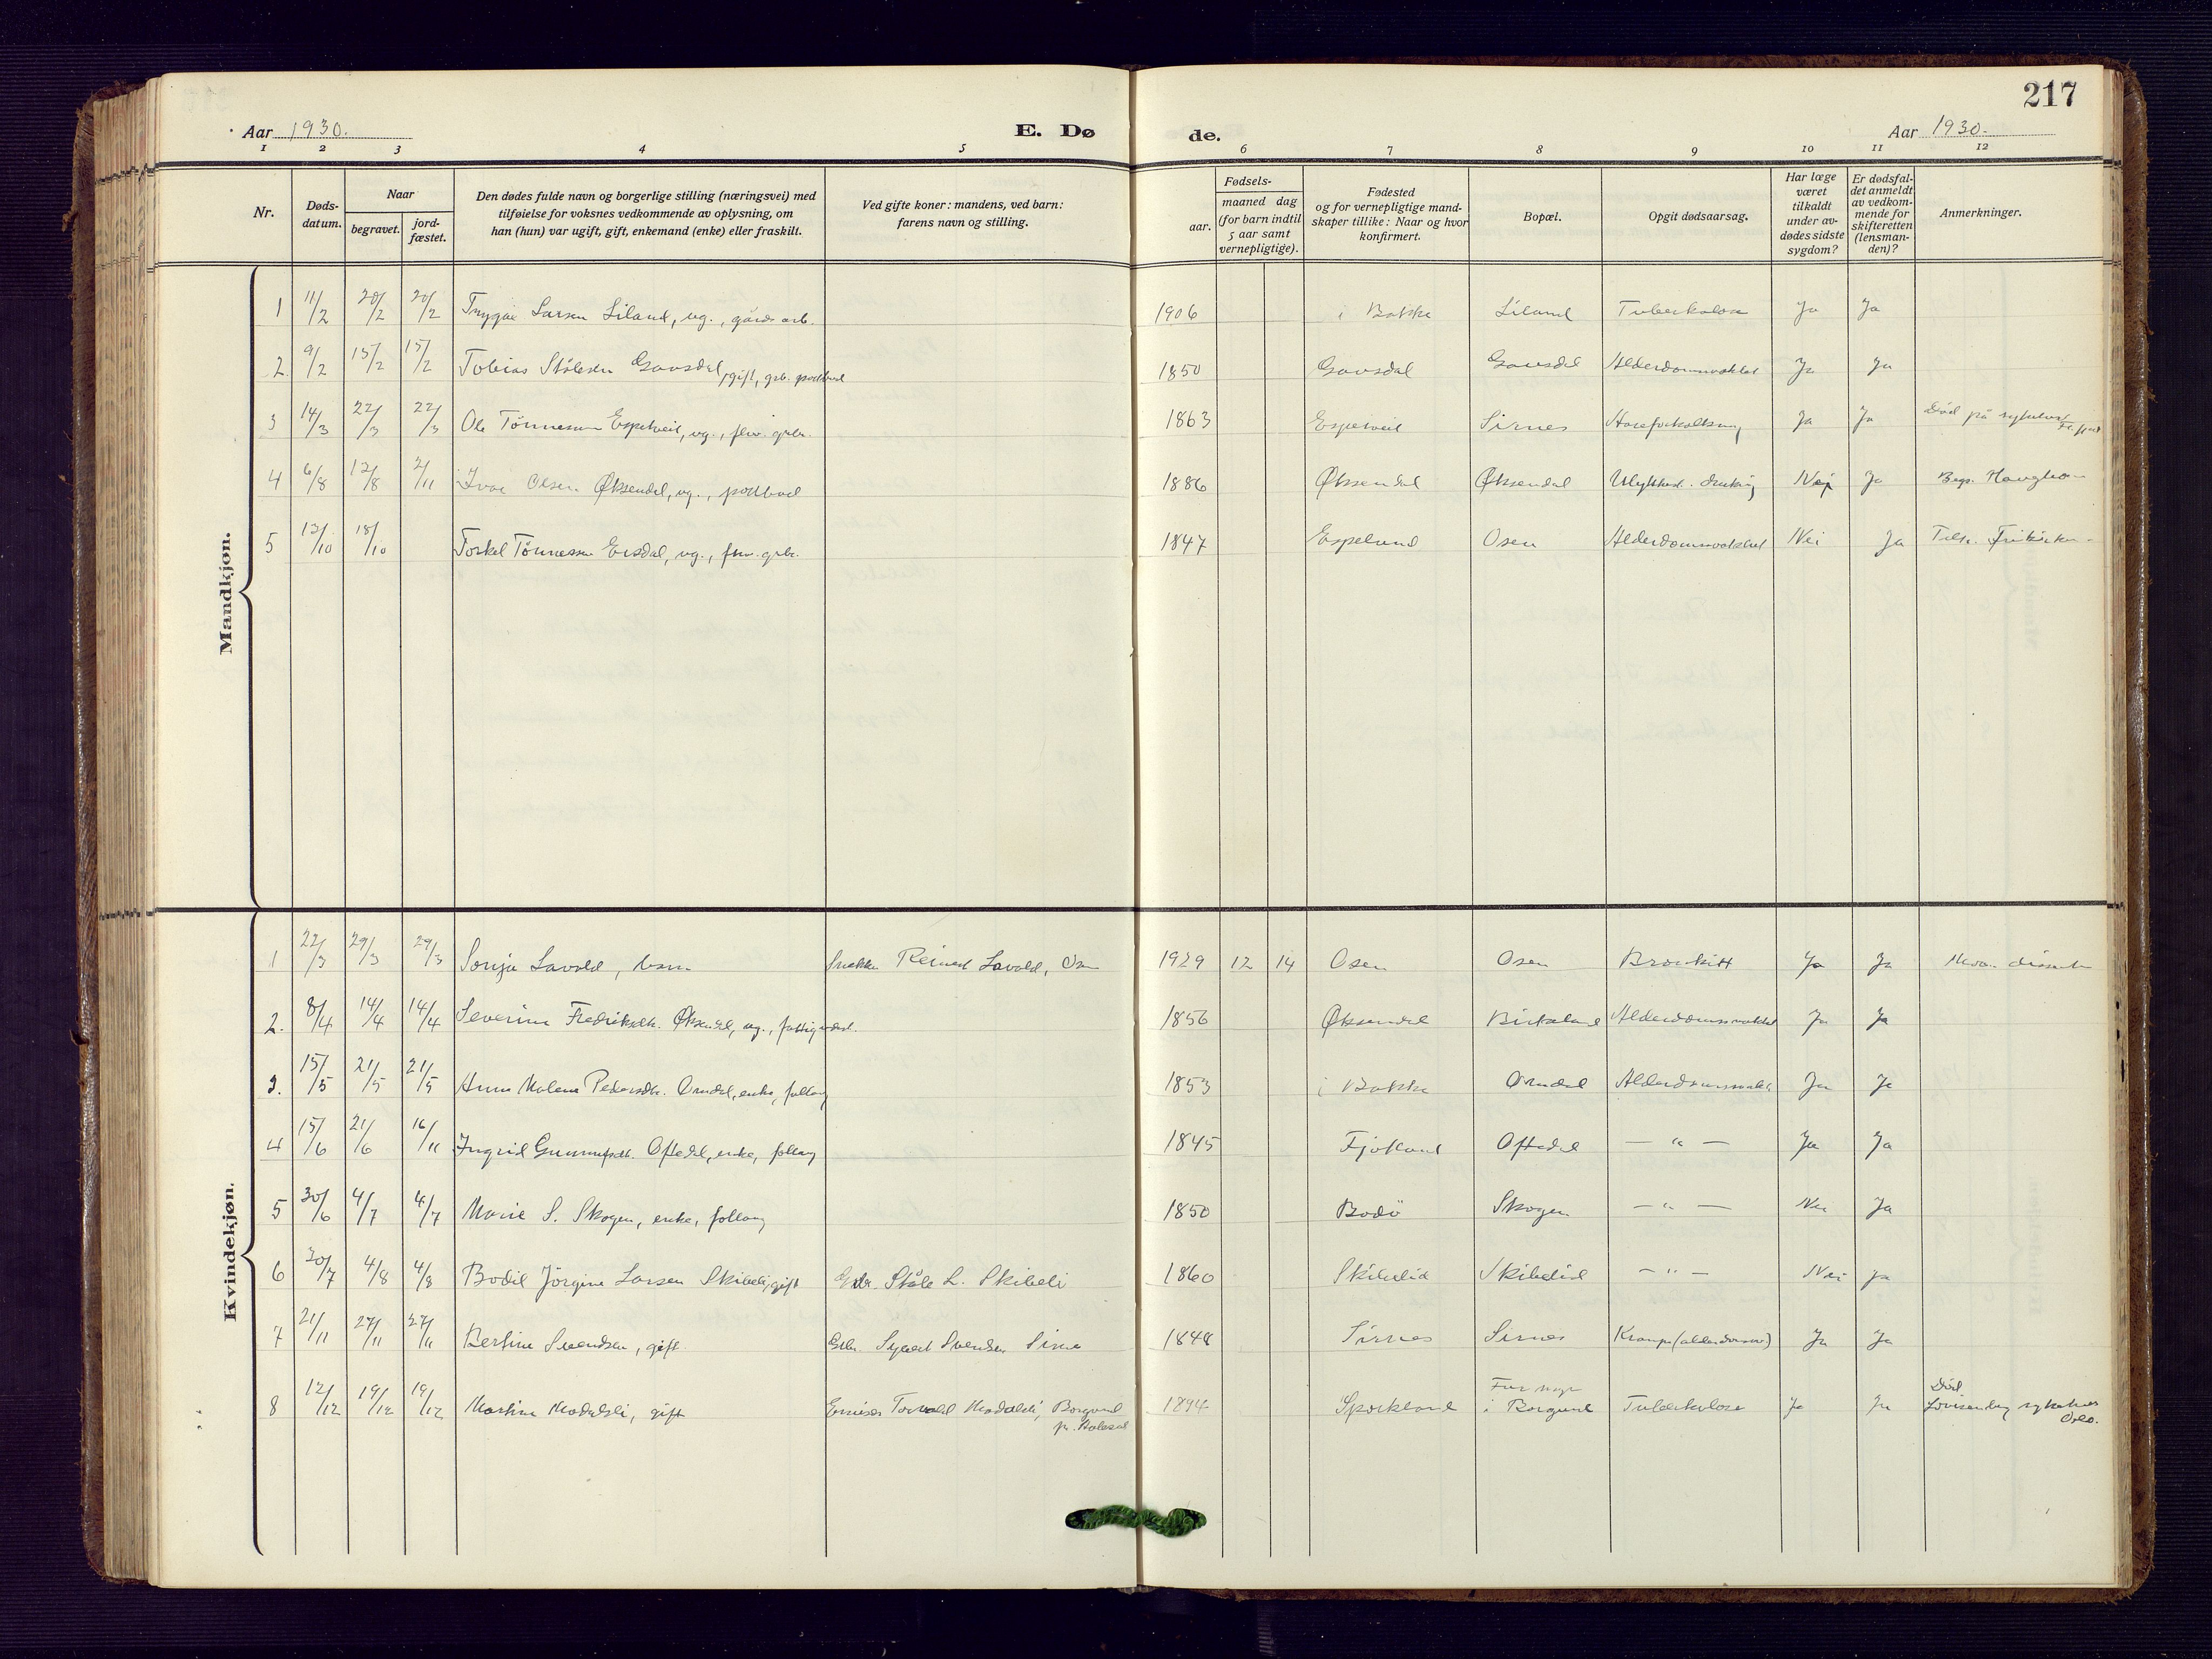 217
Aar 1930.
E. Dø
de.
Aar 1930.
1 2 3 4 5 6 7 8 9 10 11 12
Nr.
Døds-
datum.
Naar
begravet.
jord-
fæstet.
Den dødes fulde navn og borgerlige stilling (næringsvei) med
tilføielse for voksnes vedkommende av oplysning, om
han (hun) var ugift, gift, enkemand (enke) eller fraskilt.
Ved gifte koner: mandens, ved barn:
farens navn og stilling.
Fødsels-
aar.
maaned dag
(for barn indtil
5 aar samt
vernepligtige).
Fødested
og for vernepligtige mand-
skaper tillike: Naar og hvor
konfirmert.
Bopæl.
Opgit dødsaarsag.
Har læge
været
tilkaldt
under av-
dødes sidste
sygdom?
Er dødsfal-
det anmeldt
av vedkom-
mende for
skifteretten
(lensman-
den)?
Anmerkninger.
Mandkjøn.
1 11/2 20/2 20/2 Trygve Larsen Liland, ug., gårdsarb. 1906 i Bakke Liland Tuberkulose Ja Ja
2. 9/2 15/2 15/2 Tobias Stålesen Gausdal, gift, grb. postbud 1850 Gausdal Gausdal Alderdomssvakhet Ja Ja
3 14/3 22/3 22/3 Ole Tönnessen Espetveit, ug., fhv. grbr. 1863 Espetveit Sirnes Ja Ja Död på sykehus
4 6/8 12/8 2/11 Ivar Olsen Øksendal, ug., postbud 1886 Øksendal Øksendal Ulykkest. drukning Nei Ja Begr.
5 13/10 18/10 Torkel Tönnessen Eisdal, ug., fhv. grbr. 1847 Espelund Osen Alderdomssvakhet Nei Ja Tilh. Frikirken
Kvindekjøn.
1 22/3 29/3 29/3 Sonja Lavold, barn Snekker Reinert Lavold, Osen 1929 12 14 Osen Osen Bronkitt Ja Ja
2. 8/4 14/4 14/4 Severine Fredriksdtr. Øksendal, ug., fattigunderst. 1856 Øksendal Birkeland Alderdomssvakhet Ja Ja
3. 15/5 21/5 21/5 Anne Malene Pedersdtr. Omdal, enke, föllaug 1853 i Bakke Omdal Alderdomssvakh. Ja Ja
4 15/6 21/6 16/11 Ingrid Gunnufsdtr. Oftedal, enke, föllaug 1845 Fjotland Oftedal — " — Ja Ja
5 30/6 4/7 4/7 Marie S. Skogen, enke, föllaug 1850 Bodö Skogen — " — Nei Ja
6 30/7 4/8 4/8 Bodil Jörgine Larsen Skibeli, gift Grbr. Ståle L. Skibeli 1860 Skibelid Skibelid — " — Nei Ja
7 21/11 27/11 27/11 Bertine Svendsen, gift Grbr. Sigvart Svendsen Sirnes 1848 Sirnes Sirnes Krampe (alderdomssv.) Ja Ja
8 12/12 19/12 19/12 Martine Modalsli, gift Emissær Torvald Modalsli, Borgund
pr. Ålesund 1894 Sporkland
i Borgund Tuberkulose Ja Ja Död
Lovisenberg sykehus
Oslo.